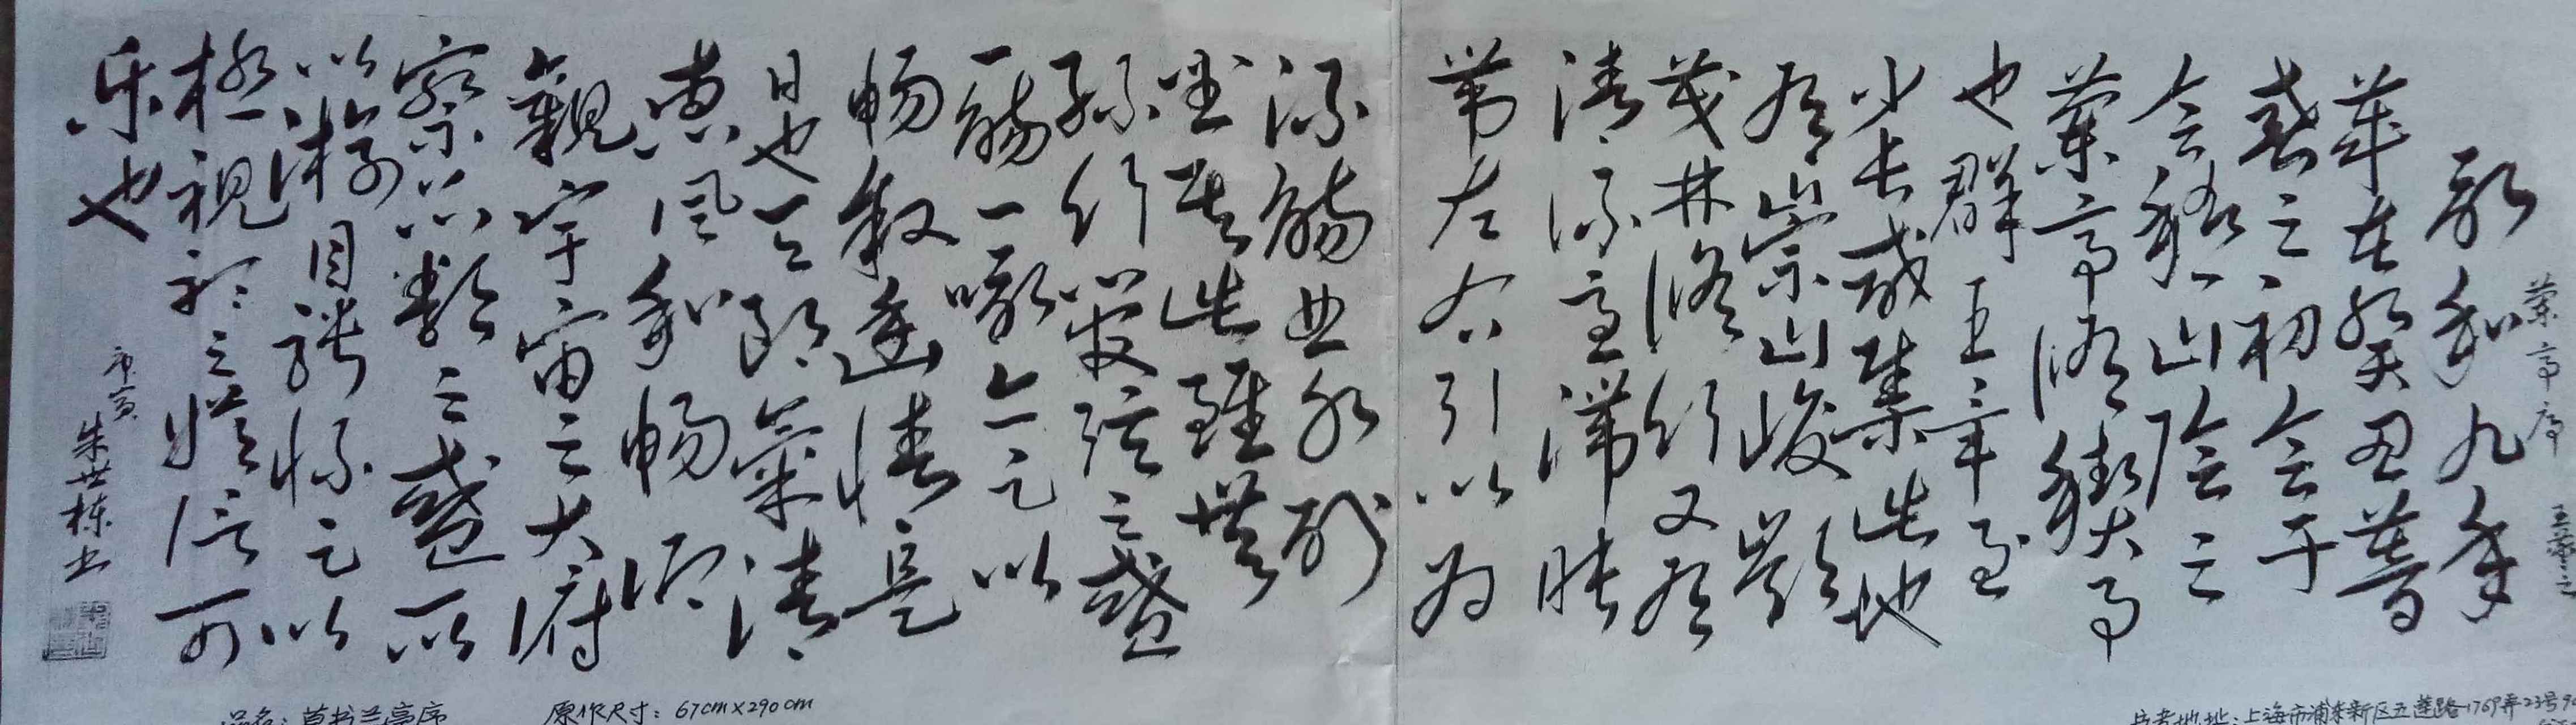 蘭亭序 王羲之
永和九年
歲在癸丑暮
春之初会于
会稽山陰之
蘭亭脩稧事
也群賢畢至
少長咸集此地
有崇山峻領
茂林脩竹又有
清流激湍映
帶左右引以為
流觴曲水列
坐其次雖無
絲竹管弦之盛
一觴一詠亦足以
畅叙幽情是
日也天朗氣清
惠風和畅仰
觀宇宙之大府
察品類之盛所
以游目騁怀足以
極視聽之娱信可
乐也
庚寅 朱世栋书
品名:草书兰亭序 原作尺寸:67cm×290cm
作者地址:上海市浦东新区五莲路1769弄23号